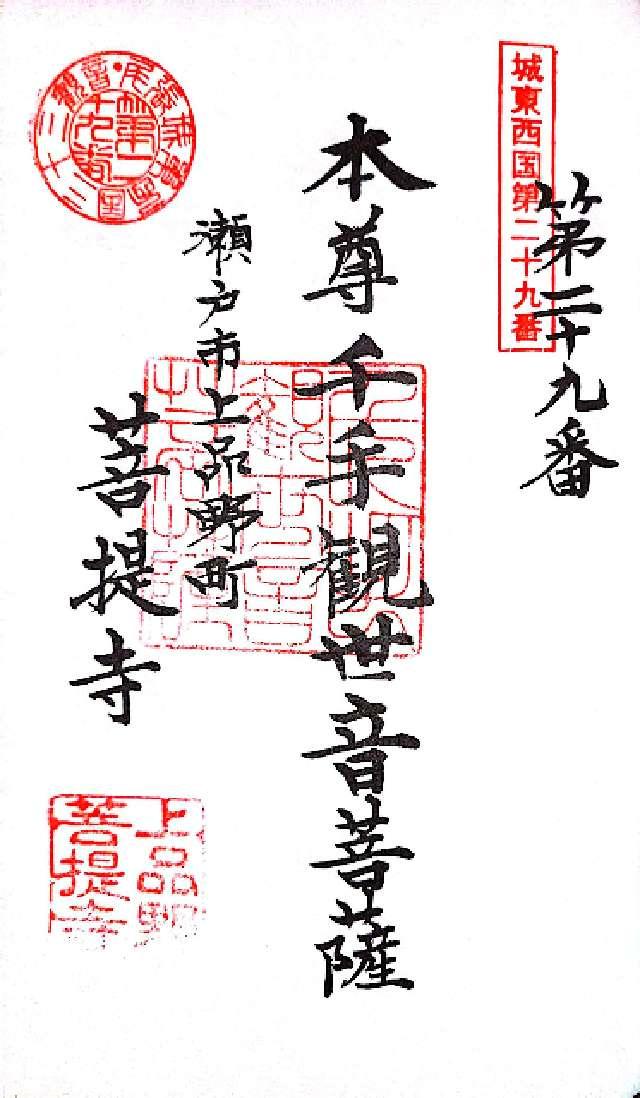 城東西国第二十九番
第二十九番
本尊千手観世音菩薩
瀬戸市上品野町
菩提寺
上品野
菩提寺